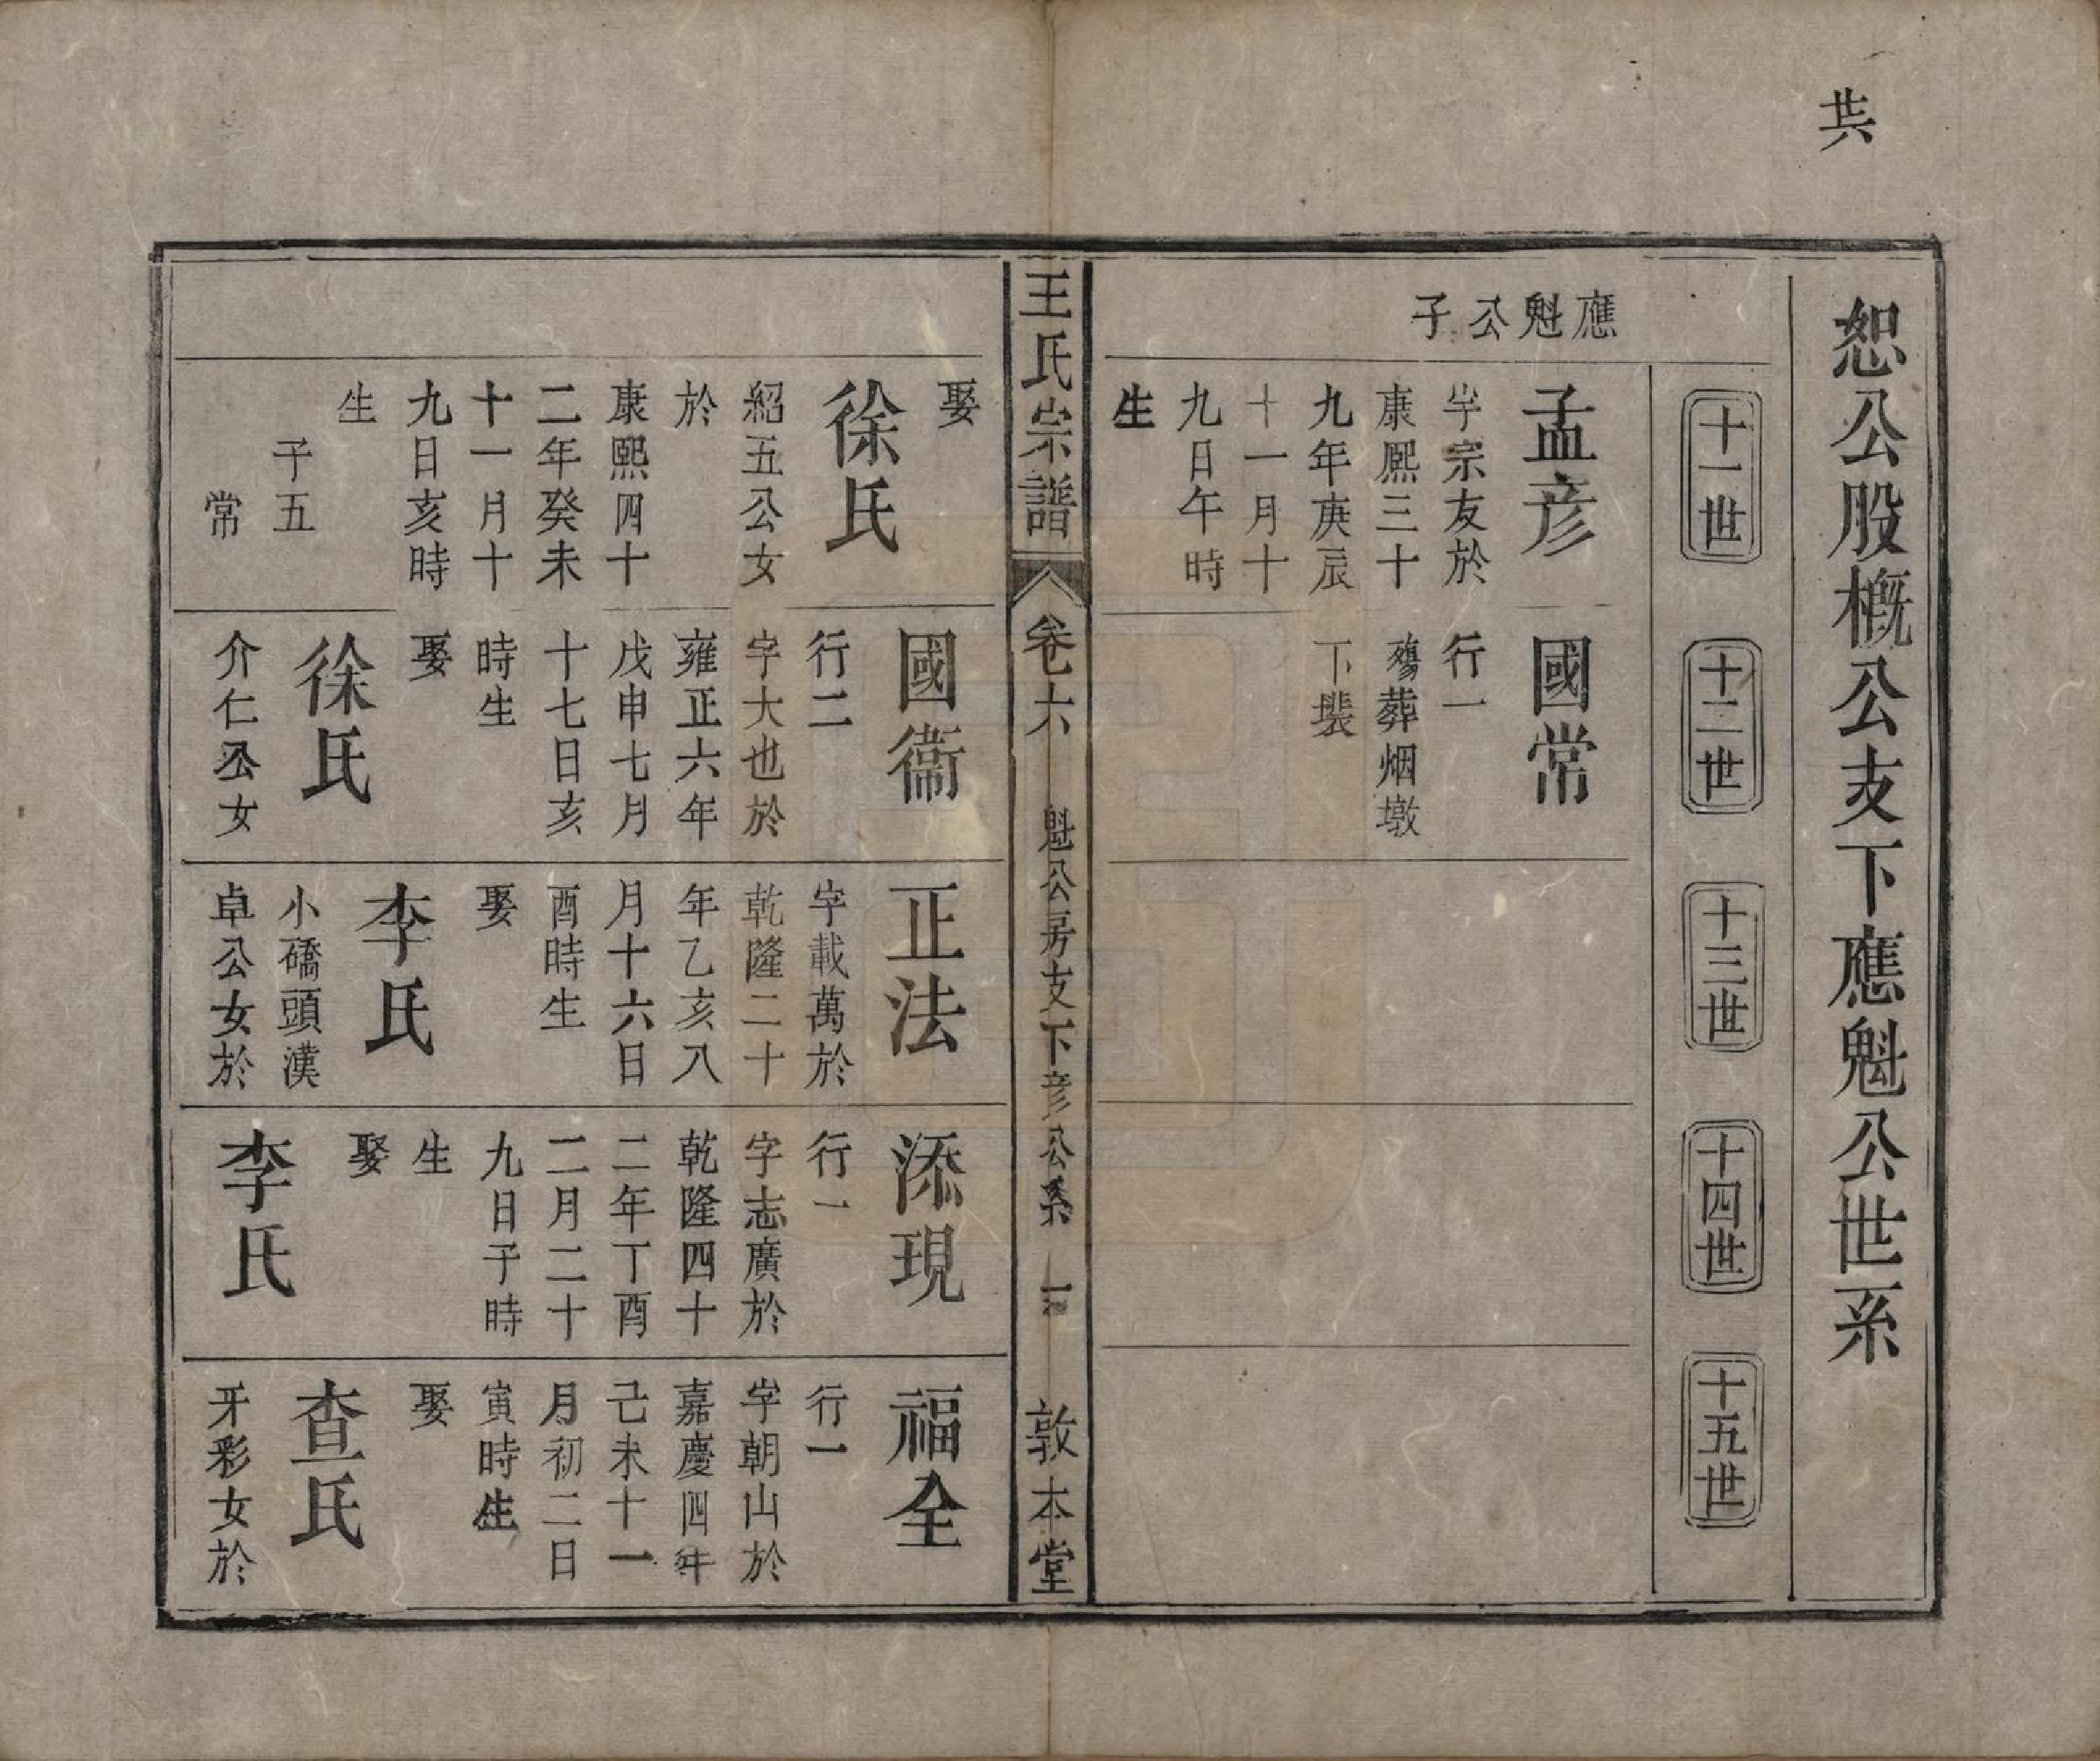 共
恕公股概公支下應魁公世系
十一世
十二世
十三世
十四世
十五世
應魁公子
孟彦
字宗友於
康熙三十
九年庚辰
十一月十
九日午時
生
國常
行一
殤葬烟墩
下塟
王氏宗譜
卷六
魁公房支下彦公系
一
敦本堂
娶
徐氏
紹五公女
於
康熙四十
二年癸未
十一月十
九日亥時
生
子五
常
國衞
行二
字大也於
雍正六年
戊申七月
十七日亥
時生
娶
徐氏
介仁公女
正法
字載萬於
乾隆二十
年乙亥八
月十六日
酉時生
娶
李氏
小礄頭漢
卓公女於
添現
行一
字志廣於
乾隆四十
二年丁酉
二月二十
九日子時
生
娶
李氏
福全
行一
字朝山於
嘉慶四年
己未十一
月初二日
寅時生
娶
查氏
牙彩女於